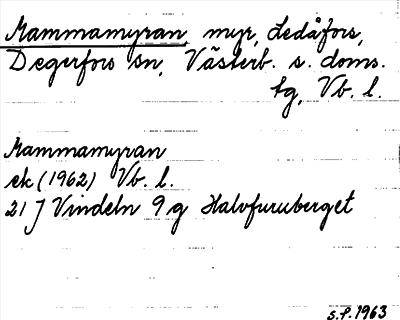 Mammamyran, myr, Ledåfors,
Degerfors sn, Västerb. s. doms.
tg, Vb. l.
Mammamyran
ek (1962) Vb. l.
21 J Vindeln 9 g Halvfuruberget
S.P. 1963